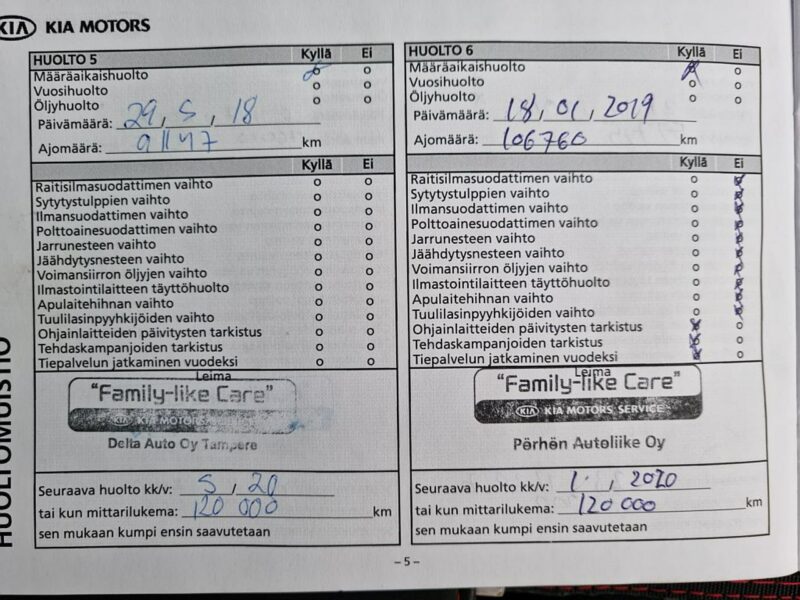 KIA KIA MOTORS
HUOLTO 5 Kyllä Ei
Määräaikaishuolto
Vuosihuolto
Öljyhuolto
Päivämäärä: 29, 5, 18
Ajomäärä: 91147 km
Kyllä Ei
Raitisilmasuodattimen vaihto
Sytytystulppien vaihto
Ilmansuodattimen vaihto
Polttoainesuodattimen vaihto
Jarrunesteen vaihto
Jäähdytysnesteen vaihto
Voimansiirron öljyjen vaihto
Ilmastointilaitteen täyttöhuolto
Apulaitehihnan vaihto
Tuulilasinpyyhkijöiden vaihto
Ohjainlaitteiden päivitysten tarkistus
Tehdaskampanjoiden tarkistus
Tiepalvelun jatkaminen vuodeksi
Leima
"Family-like Care"
KIA KIA MOTORS
Delta Auto Oy Tampere
Seuraava huolto kk/v: 5, 20
tai kun mittarilukema: 120 000 km
sen mukaan kumpi ensin saavutetaan
HUOLTO 6 Kyllä Ei
Määräaikaishuolto
Vuosihuolto
Öljyhuolto
Päivämäärä: 18, 01, 2019
Ajomäärä: 106760 km
Kyllä Ei
Raitisilmasuodattimen vaihto
Sytytystulppien vaihto
Ilmansuodattimen vaihto
Polttoainesuodattimen vaihto
Jarrunesteen vaihto
Jäähdytysnesteen vaihto
Voimansiirron öljyjen vaihto
Ilmastointilaitteen täyttöhuolto
Apulaitehihnan vaihto
Tuulilasinpyyhkijöiden vaihto
Ohjainlaitteiden päivitysten tarkistus
Tehdaskampanjoiden tarkistus
Tiepalvelun jatkaminen vuodeksi
Leima
"Family-like Care"
KIA KIA MOTORS SERVICE
Pörhön Autoliike Oy
Seuraava huolto kk/v: 1., 2020
tai kun mittarilukema: 120 000 km
sen mukaan kumpi ensin saavutetaan
HUOLTOMUISTIO
–5–